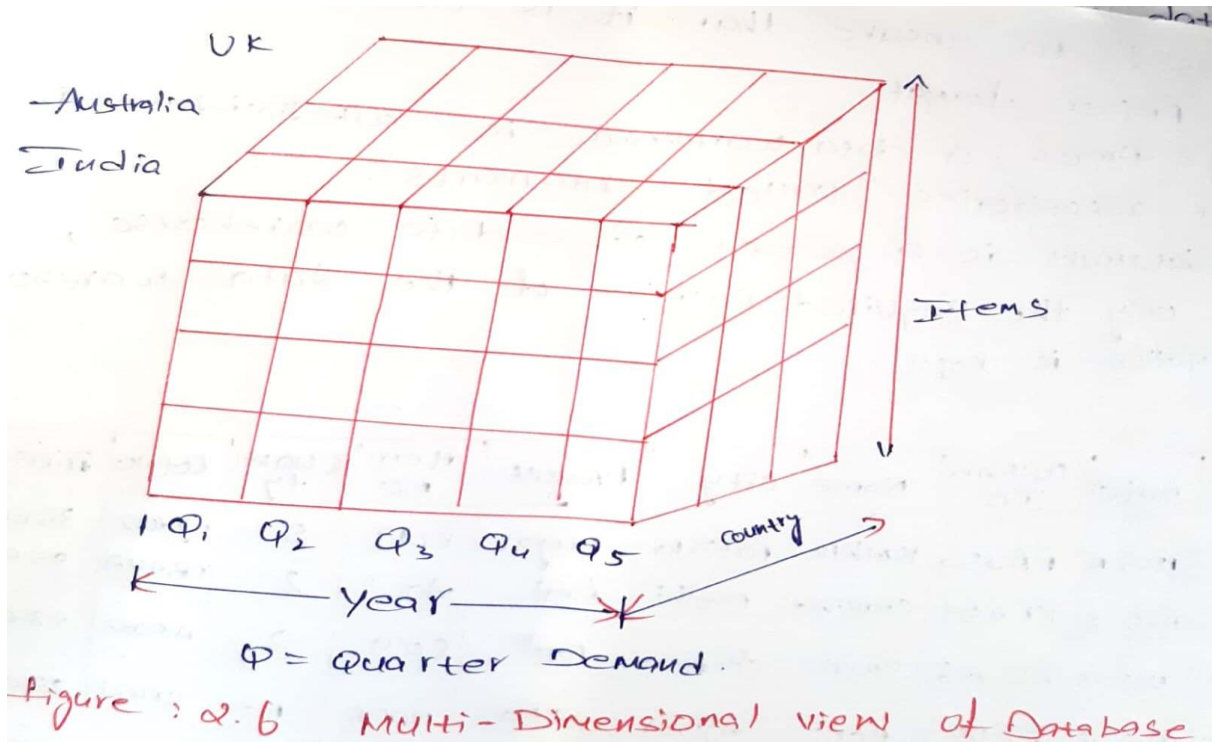 UK
Australia
India
Items
Q1 Q2 Q3 Q4 Q5
country
year
Q = Quarter Demand.
Figure : 2.6 Multi-Dimensional view of Database